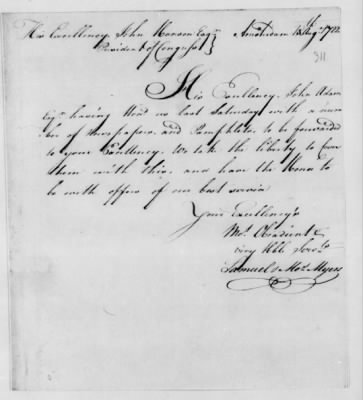 His Excellency John Hanson Esqr. } Amsterdam 15th Augt. 1782
President of Congress }
311
His Excellency John Adams
Esqr. having Hond. us last Saturday with a num
ber of Newspapers and Pamphlets to be forwarded
to your Excellency. We take the liberty to
them with this, and have the Honor to
be with offers of our best service
Your Excellency's
Mot. Obedient &
very Hble Servts.
Samuel & Mos. Myers